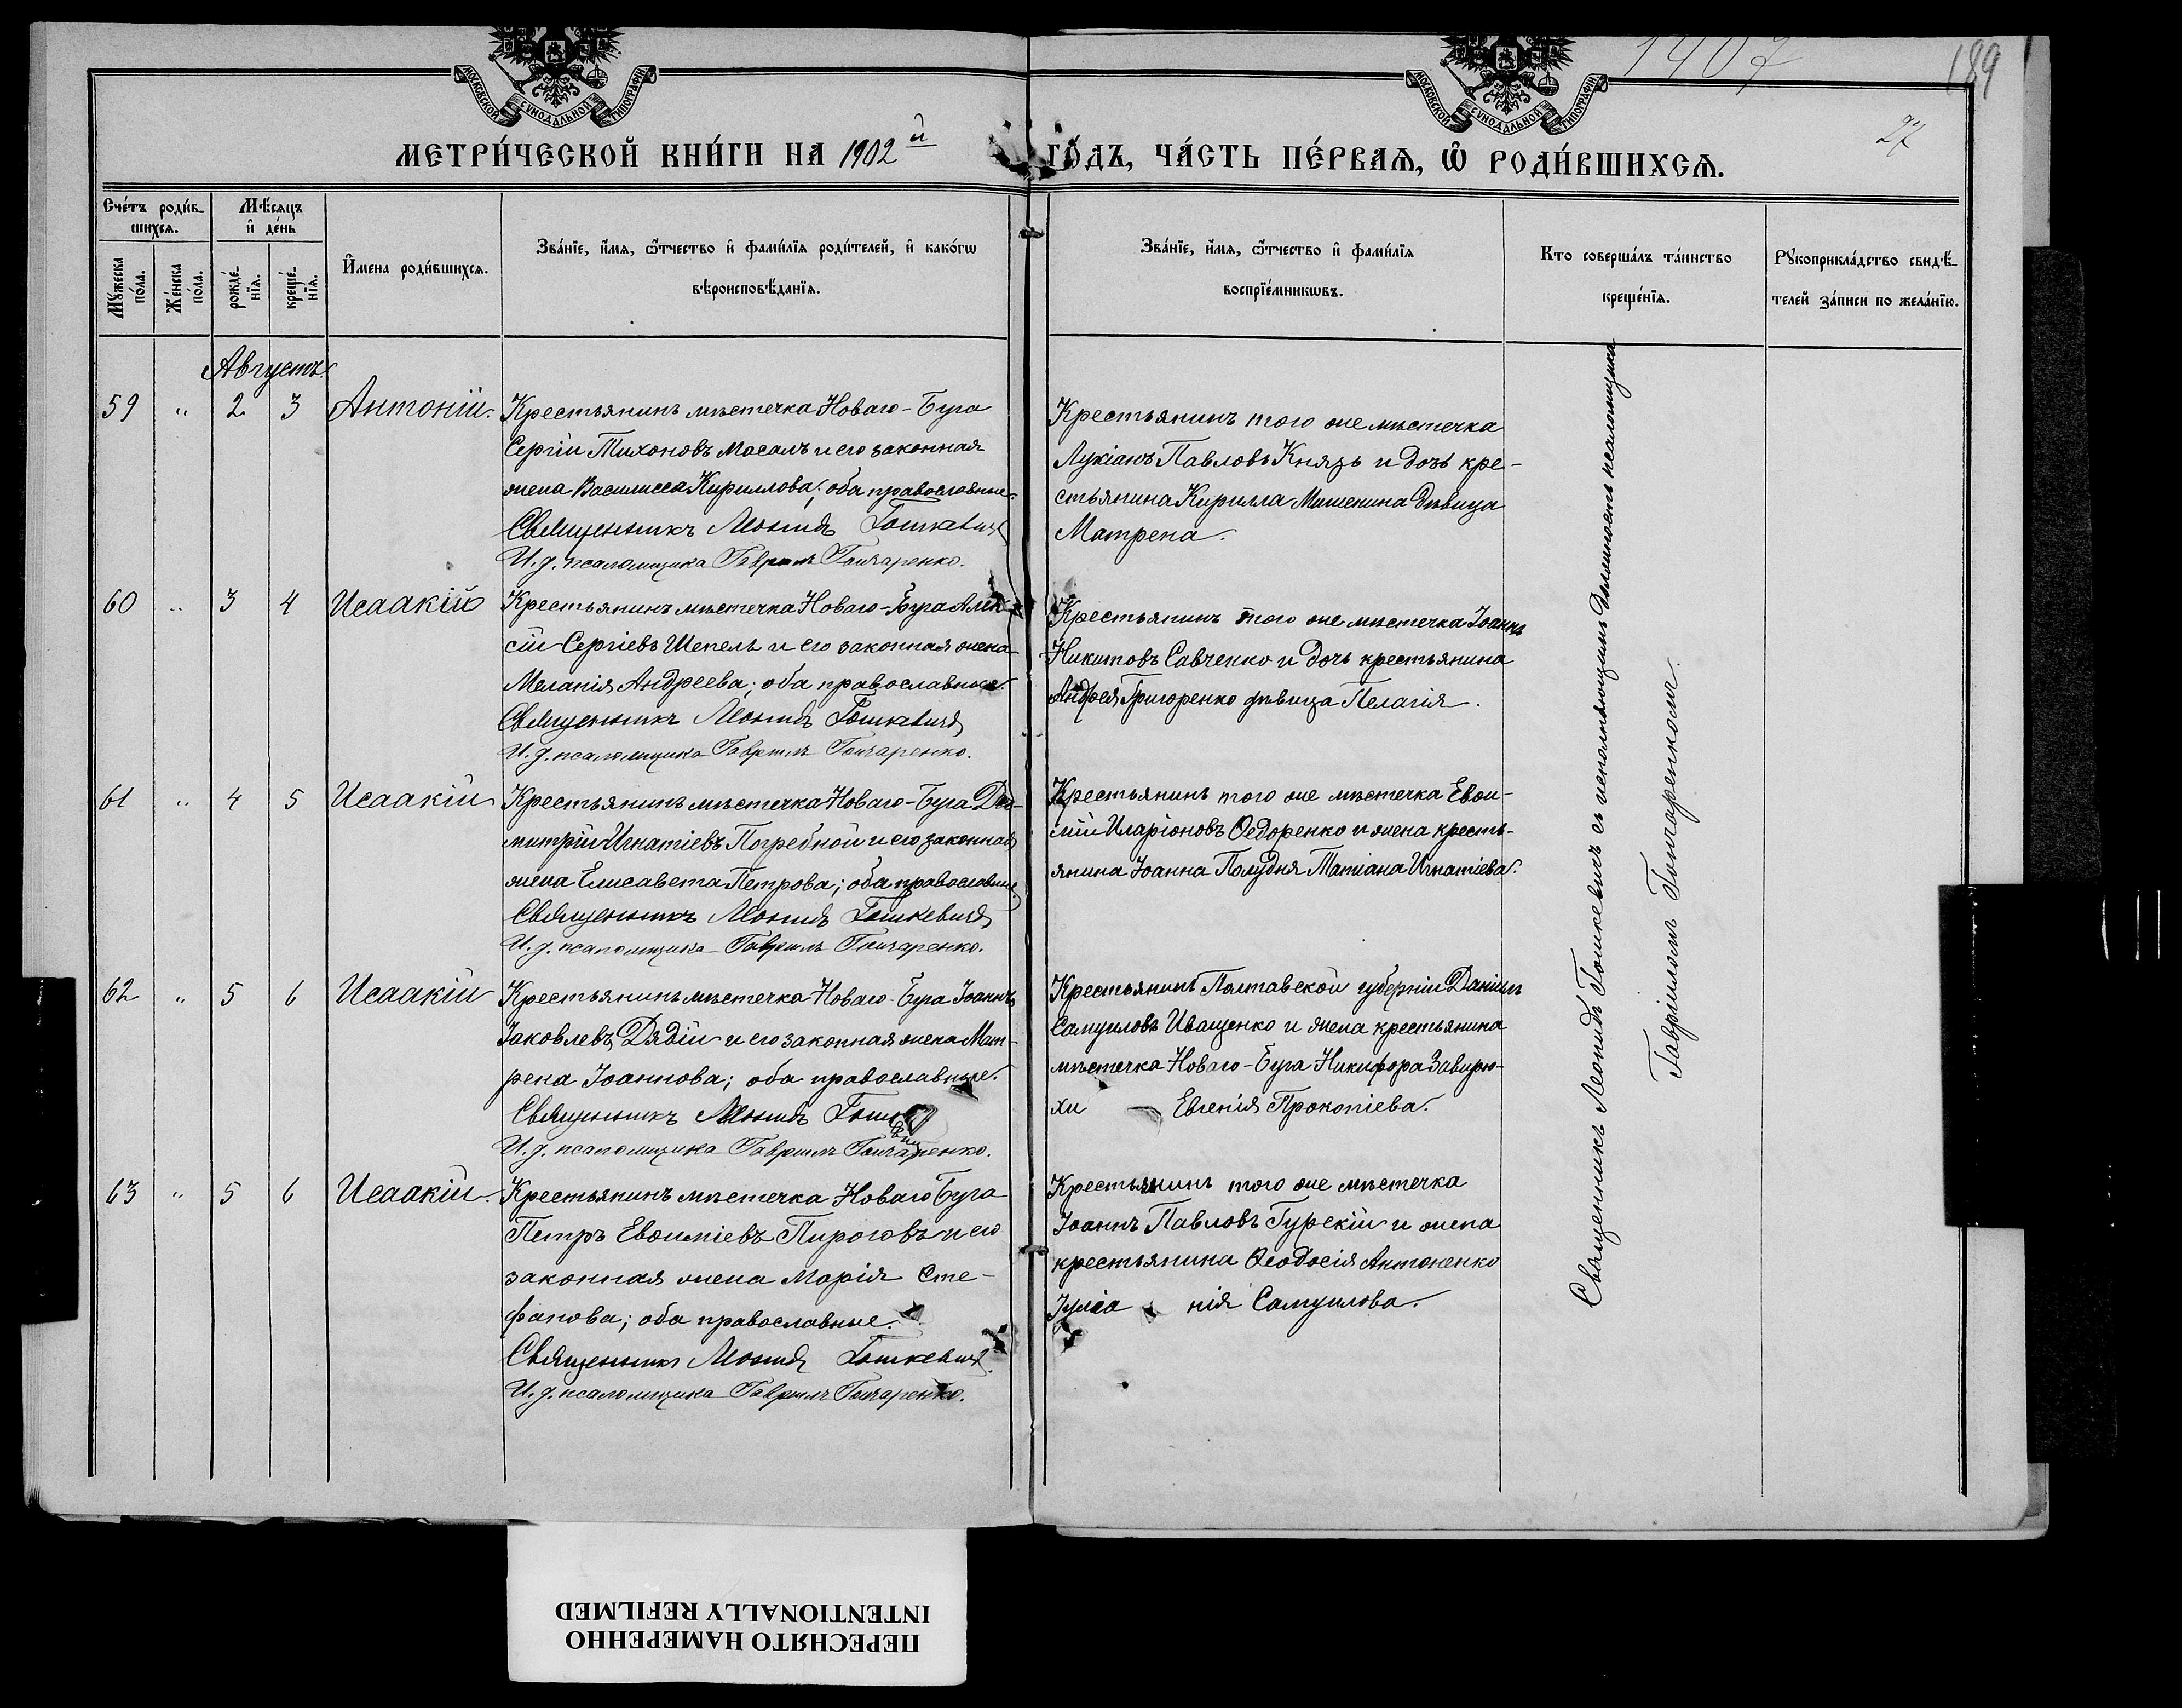 МОСКОВСКОЙ СѴНОДАЛЬНОЙ ТИПОГРАФІИ
МОСКОВСКОЙ СѴНОДАЛЬНОЙ ТИПОГРАФІИ
1407
189
27
МЕТРИ́ЧЕСКОЙ КНИ́ГИ НА 1902й
ГО́ДЪ, ЧА́СТЬ ПЕ́РВАѦ, Ѡ РОДИ́ВШИХСѦ.
Сче́тъ роди́в-
шихсѧ.
Мѣ́сѧцъ
и҆ де́нь
Мꙋ́жеска
по́ла.
Же́нска
по́ла.
рожде́-
нїѧ.
креще́-
нїѧ.
И҆мена роди́вшихсѧ.
Зва́нїе, и҆́мѧ, ѻ҆́тчество и҆ фами́лїѧ роди́телей, и҆ како́гѡ
вѣроисповѣ́данїѧ.
Зва́нїе, и҆́мѧ, ѻ҆́тчество и҆ фами́лїѧ
воспрїе́мникѡвъ.
Кто соверша́лъ та́инство
креще́нїѧ.
Рꙋкоприкла́дство свидѣ́-
телей за́писи по жела́нїю.
Августъ.
59 " 2 3 Антоній.
Крестьянинъ мѣстечка Новаго-Буга
Сергій Тихоновъ Мосалъ и его законная
жена Василисса Кириллова; оба православные.
Священникъ Леонидъ Гошкевичъ
И. д. псаломщика Гавріилъ Гончаренко.
Крестьянинъ того же мѣстечка
Лукіанъ Павловъ Князь и дочь кре-
стьянина Кирилла Машенина дѣвица
Матрена.
60 " 3 4 Исаакій
Крестьянинъ мѣстечка Новаго-Буга Алек-
сій Сергіевъ Шепель и его законная жена
Меланія Андреева; оба православные.
Священникъ Леонидъ Гошкевичъ
И. д. псаломщика Гавріилъ Гончаренко.
Крестьянинъ того же мѣстечка Іоаннъ
Никитовъ Савченко и дочь крестьянина
Андрея Григоренко дѣвица Пелагія.
61 " 4 5 Исаакій
Крестьянинъ мѣстечка Новаго-Буга Ди-
митрій Игнатіевъ Погребной и его законная
жена Елисавета Петрова; оба православные.
Священникъ Леонидъ Гошкевичъ
И. д. псаломщика Гавріилъ Гончаренко.
Крестьянинъ того же мѣстечка Евѳи-
мій Иларіоновъ Ѳедоренко и жена кресть-
янина Іоанна Полудня Татіана Игнатіева.
62 " 5 6 Исаакій
Крестьянинъ мѣстечка Новаго-Буга Іоаннъ
Іаковлевъ Дядій и его законная жена Мат-
рена Іоаннова; оба православные.
Священникъ Леонидъ Гошкевич
И. д. псаломщика Гавріилъ Гончаренко.
Крестьянинъ Полтавской губерніи Даніилъ
Самуиловъ Иващенко и жена крестьянина
мѣстечка Новаго-Буга Никифора Завирю-
хи Евгенія Прокопіева.
63 " 5 6 Исаакій.
Крестьянинъ мѣстечка Новаго Буга
Петръ Евѳиміевъ Пироговъ и его
законная жена Марія Сте-
фанова; оба православные.
Священникъ Леонидъ Гошкевичъ.
И. д. псаломщика Гавріилъ Гончаренко.
Крестьянинъ того же мѣстечка
Іоаннъ Павловъ Гурскій и жена
крестьянина Ѳеодосія Антоненко
Іуліа нія Самуилова.
Священникъ Леонидъ Гошкевичъ съ исполняющимъ должность псаломщика
Гавріиломъ Гончаренкомъ.
ПЕРЕСНЯТО НАМЕРЕННО
INTENTIONALLY REFILMED